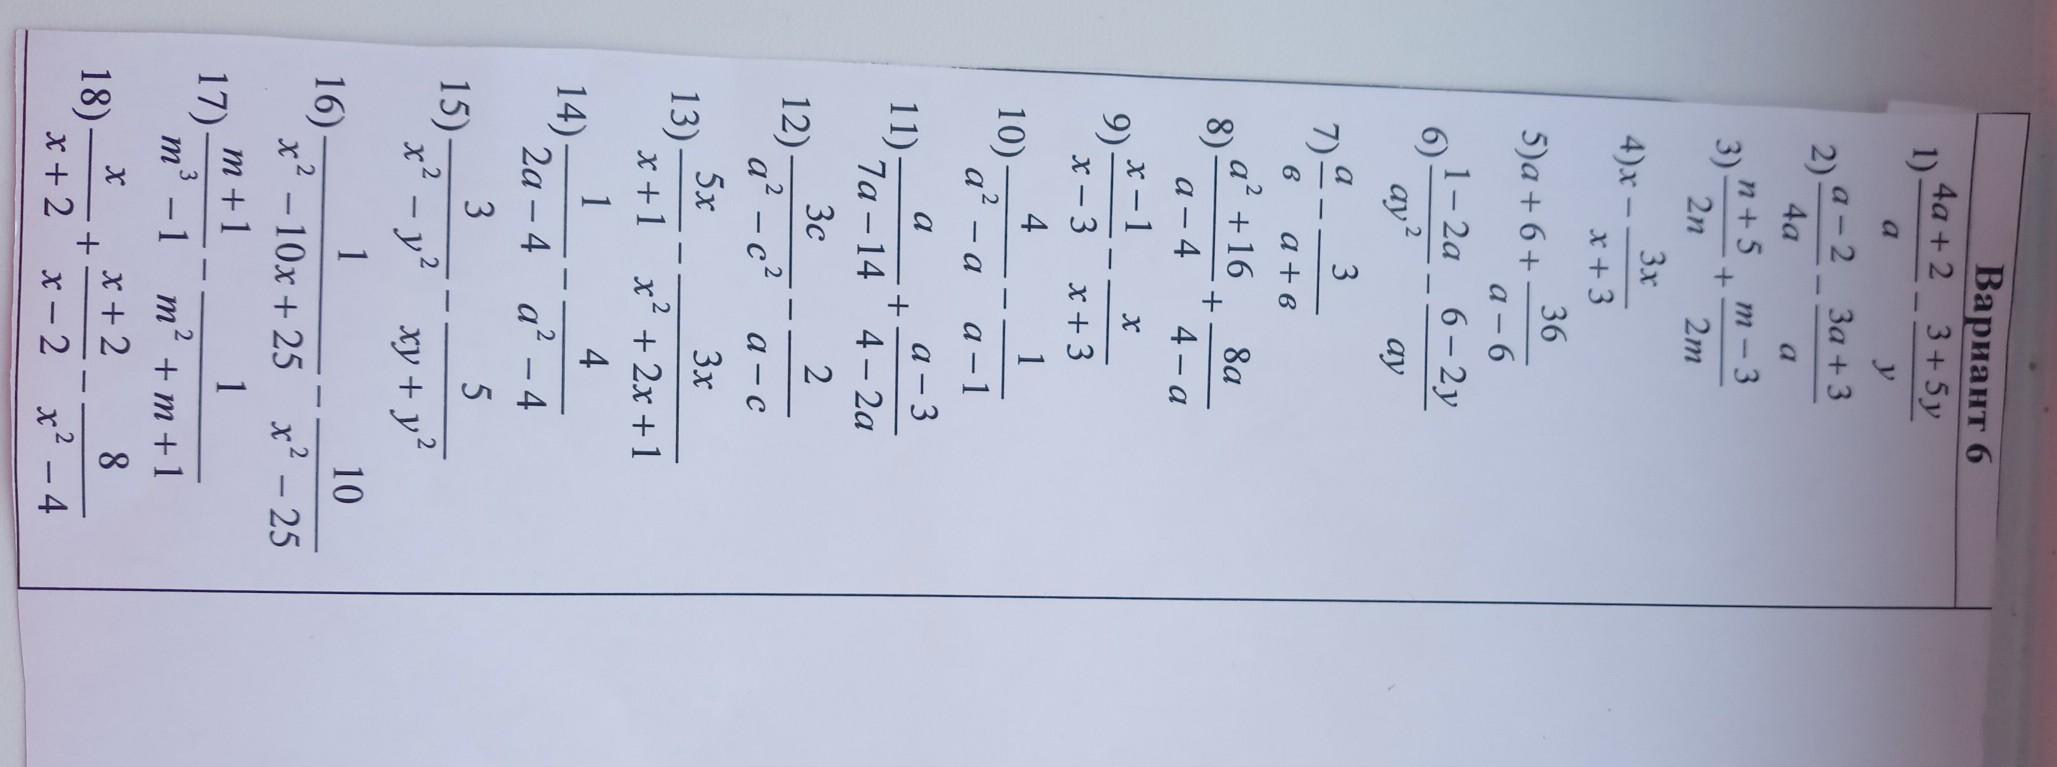 Вариант 6
1) \frac{4a+2}{a} - \frac{3+5y}{y}
2) \frac{a-2}{4a} - \frac{3a+3}{a}
3) \frac{n+5}{2n} + \frac{m-3}{2m}
4) x - \frac{3x}{x+3}
5) a+6+\frac{36}{a-6}
6) \frac{1-2a}{ay^2} - \frac{6-2y}{ay}
7) \frac{a}{в} - \frac{3}{a+в}
8) \frac{a^2+16}{a-4} + \frac{8a}{4-a}
9) \frac{x-1}{x-3} - \frac{x}{x+3}
10) \frac{4}{a^2-a} - \frac{1}{a-1}
11) \frac{a}{7a-14} + \frac{a-3}{4-2a}
12) \frac{3c}{a^2-c^2} - \frac{2}{a-c}
13) \frac{5x}{x+1} - \frac{3x}{x^2+2x+1}
14) \frac{1}{2a-4} - \frac{4}{a^2-4}
15) \frac{3}{x^2-y^2} - \frac{5}{xy+y^2}
16) \frac{1}{x^2-10x+25} - \frac{10}{x^2-25}
17) \frac{m+1}{m^3-1} - \frac{1}{m^2+m+1}
18) \frac{x}{x+2} + \frac{x+2}{x-2} - \frac{8}{x^2-4}